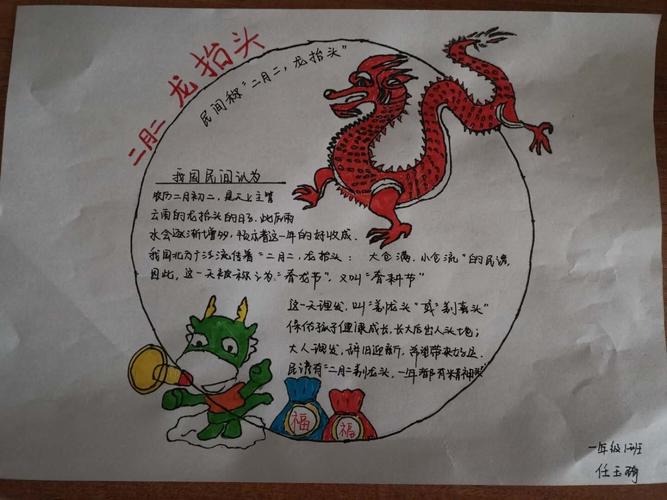 二月二 龙抬头
民间称“二月二，龙抬头”
我国民间认为
农历二月初二，是天上主管
云雨的龙抬头的日子。此后雨
水会逐渐增多，预示着这一年的好收成。
我国北方广泛流传着“二月二，龙抬头： 大仓满，小仓流”的民谚，
因此，这一天被称认为“春龙节”，又叫“春耕节”
这一天理发，叫“剃龙头”或“剃喜头”
保佑孩子健康成长，长大后出人头地；
大人理发，辞旧迎新，希望带来好运。
民谚有“二月二剃龙头，一年都有精神头”
福
福
一年级 班
任玉